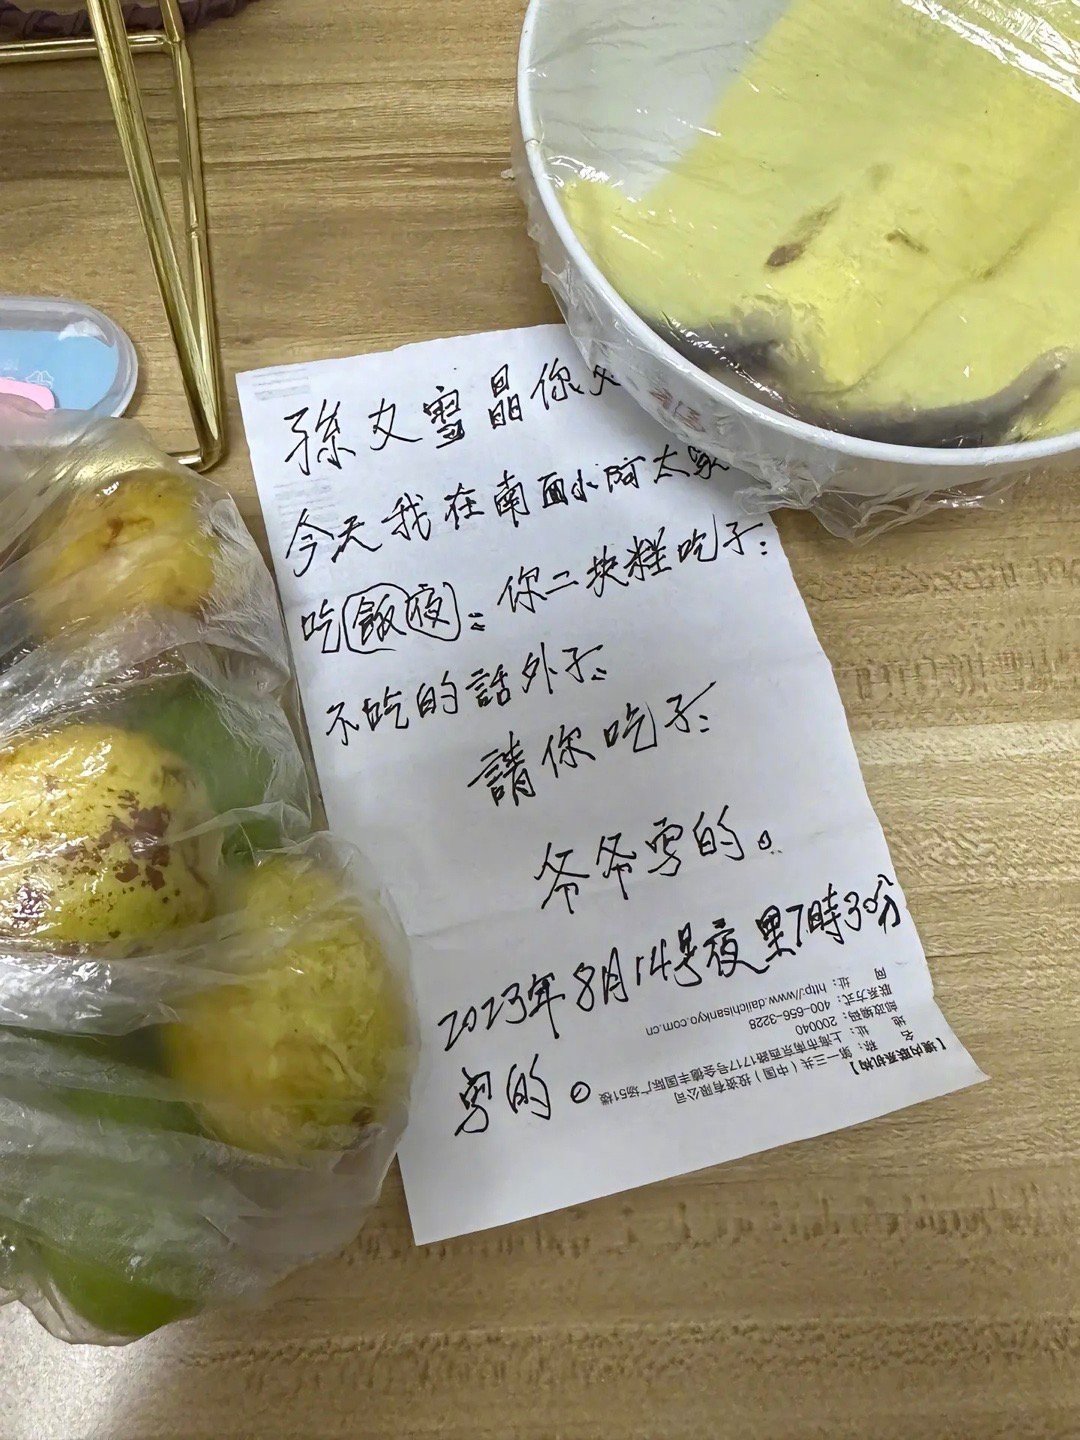 孫女雪晶你
今天我在南面小阿太家
吃飯夜：你二块糕吃子：
不吃的話外子：
請你吃子：
爷爷写的。
2023年8月14号夜里7時30分
写的。
【境内联系机构】
名 称：第一三共（中国）投资有限公司
地 址：上海市南京西路1717号会德丰国际广场51楼
邮政编码：200040
联系方式：400-656-3228
网 址：http://www.daiichisankyo.com.cn